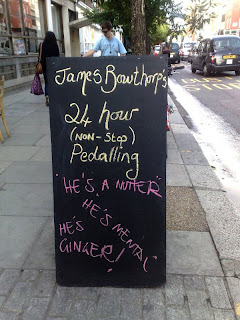 James Bowthorp's
24 hour
(NON-STOP)
Pedalling
"HE'S A NUTTER"
HE'S MENTAL"
HE'S
GINGER!